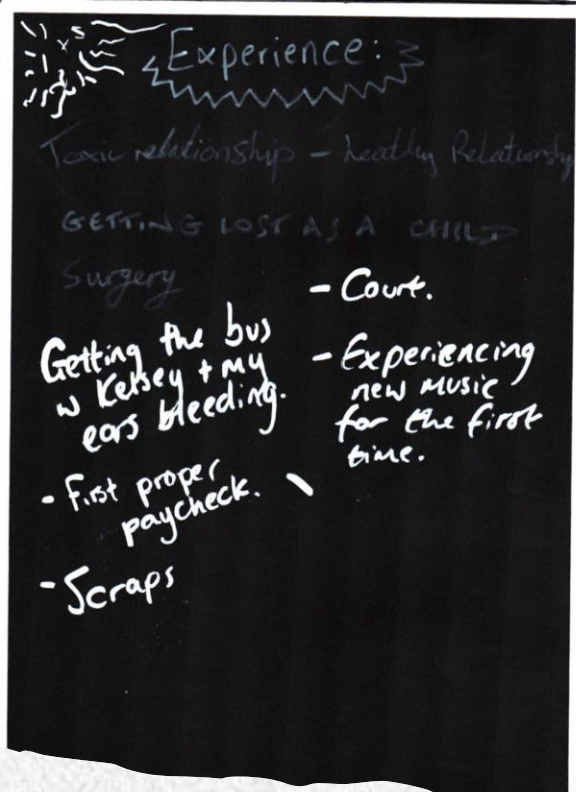 Experience:
Toxic relationship - healthy Relationship
GETTING LOST AS A CHILD
Surgery
Getting the bus
w Kelsey + my
ears bleeding.
- First proper
paycheck.
- Scraps
- Court.
- Experiencing
new music
for the first
time.